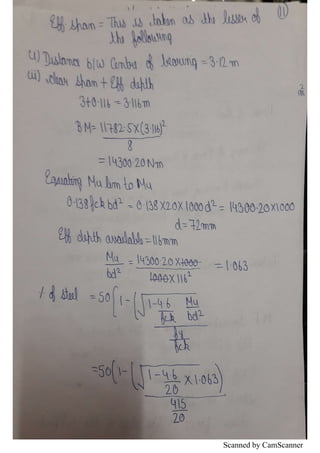 (11)
Eff span = This is taken as the lesser of
the following
(i) Distance b/w Centre of bearing = 3.12 m
(ii) clear span + Eff depth
3+0.116 = 3.116m
BM = 11782.5×(3.116)²
8
= 14300.20 Nm
Equating Mu lim to Mu
0.138fck bd² = 0.138×20×1000d² = 14300.20×1000
d = 72mm
Eff depth available = 116mm
Mu = 14300.20×1000 = 1.063
bd² 1000×116²
% of steel = 50[1-(√1-4.6 Mu
fck bd²
fy
fck
=50(1-(√1-4.6 ×1.063)
20
415
20
Scanned by CamScanner